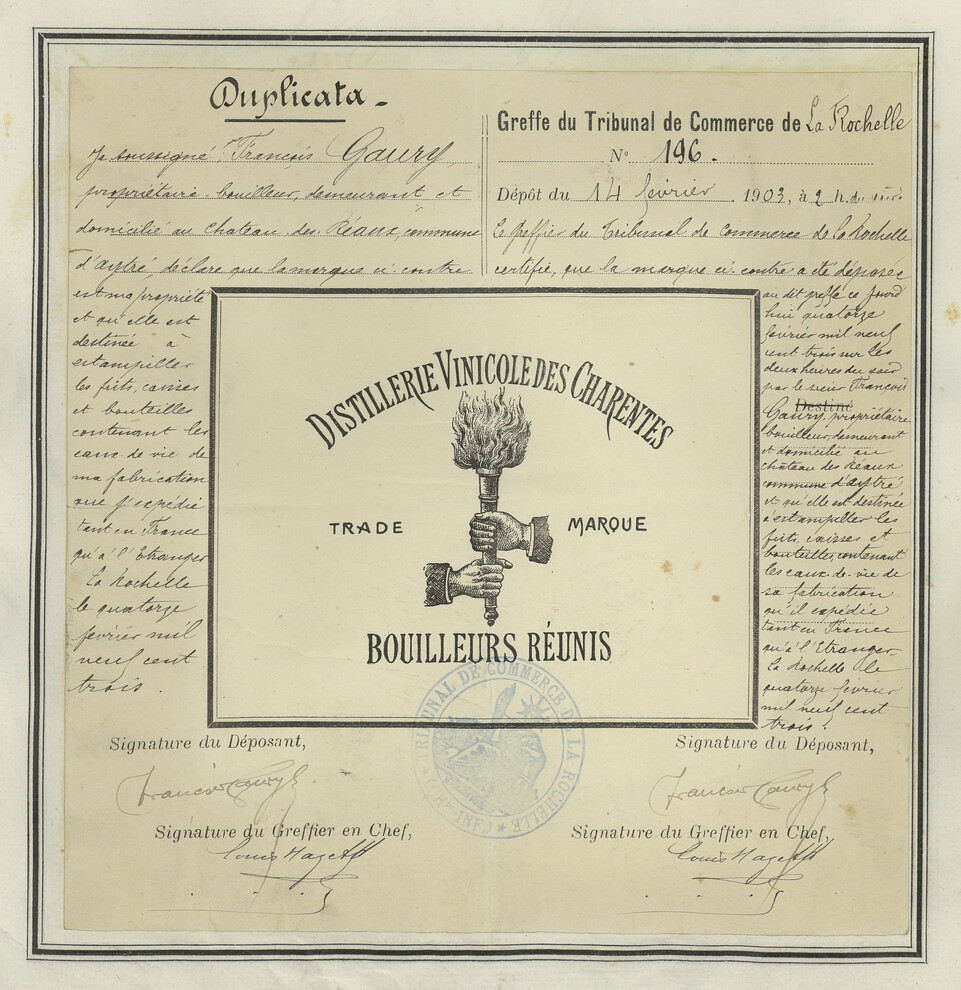 Duplicata -
Je soussigné, François Gaury,
propriétaire-bouilleur, demeurant et
domicilié au chateau des Réaux, commune
d'aytré, déclare que la marque ci-contre
est ma propriété
et qu'elle est
destinée à
estampiller
les fûts, caisses
et bouteilles
contenant les
eaux de vie de
ma fabrication
que j'expédie
tant en France
qu'à l'Etranger
La Rochelle
le quatorze
février mil
neuf cent
trois.
Greffe du Tribunal de Commerce de La Rochelle
N° 196.
Dépôt du 14 février 1903, à 2 h. du soir.
Le Greffier du Tribunal de Commerce de la Rochelle
certifie, que la marque ci-contre a été déposée
au dit greffe ce jourd
hui quatorze
février mil neuf
cent trois sur les
deux heures du soir
par le sieur François
Destiné
Gaury, propriétaire
bouilleur, demeurant
et domicilié au
château des Réaux
commune d'aytré
et qu'elle est destinée
à estampiller les
fûts, caisses et
bouteilles, contenant
les eaux-de-vie de
sa fabrication
qu'il expédie
tant en France
qu'à l'Etranger
La Rochelle le
quatorze février
mil neuf cent
trois.
DISTILLERIE VINICOLE DES CHARENTES
TRADE MARQUE
BOUILLEURS RÉUNIS
TRIBUNAL DE COMMERCE DE LA ROCHELLE
Signature du Déposant,
François Gaury
Signature du Greffier en Chef,
Signature du Déposant,
François Gaury
Signature du Greffier en Chef,